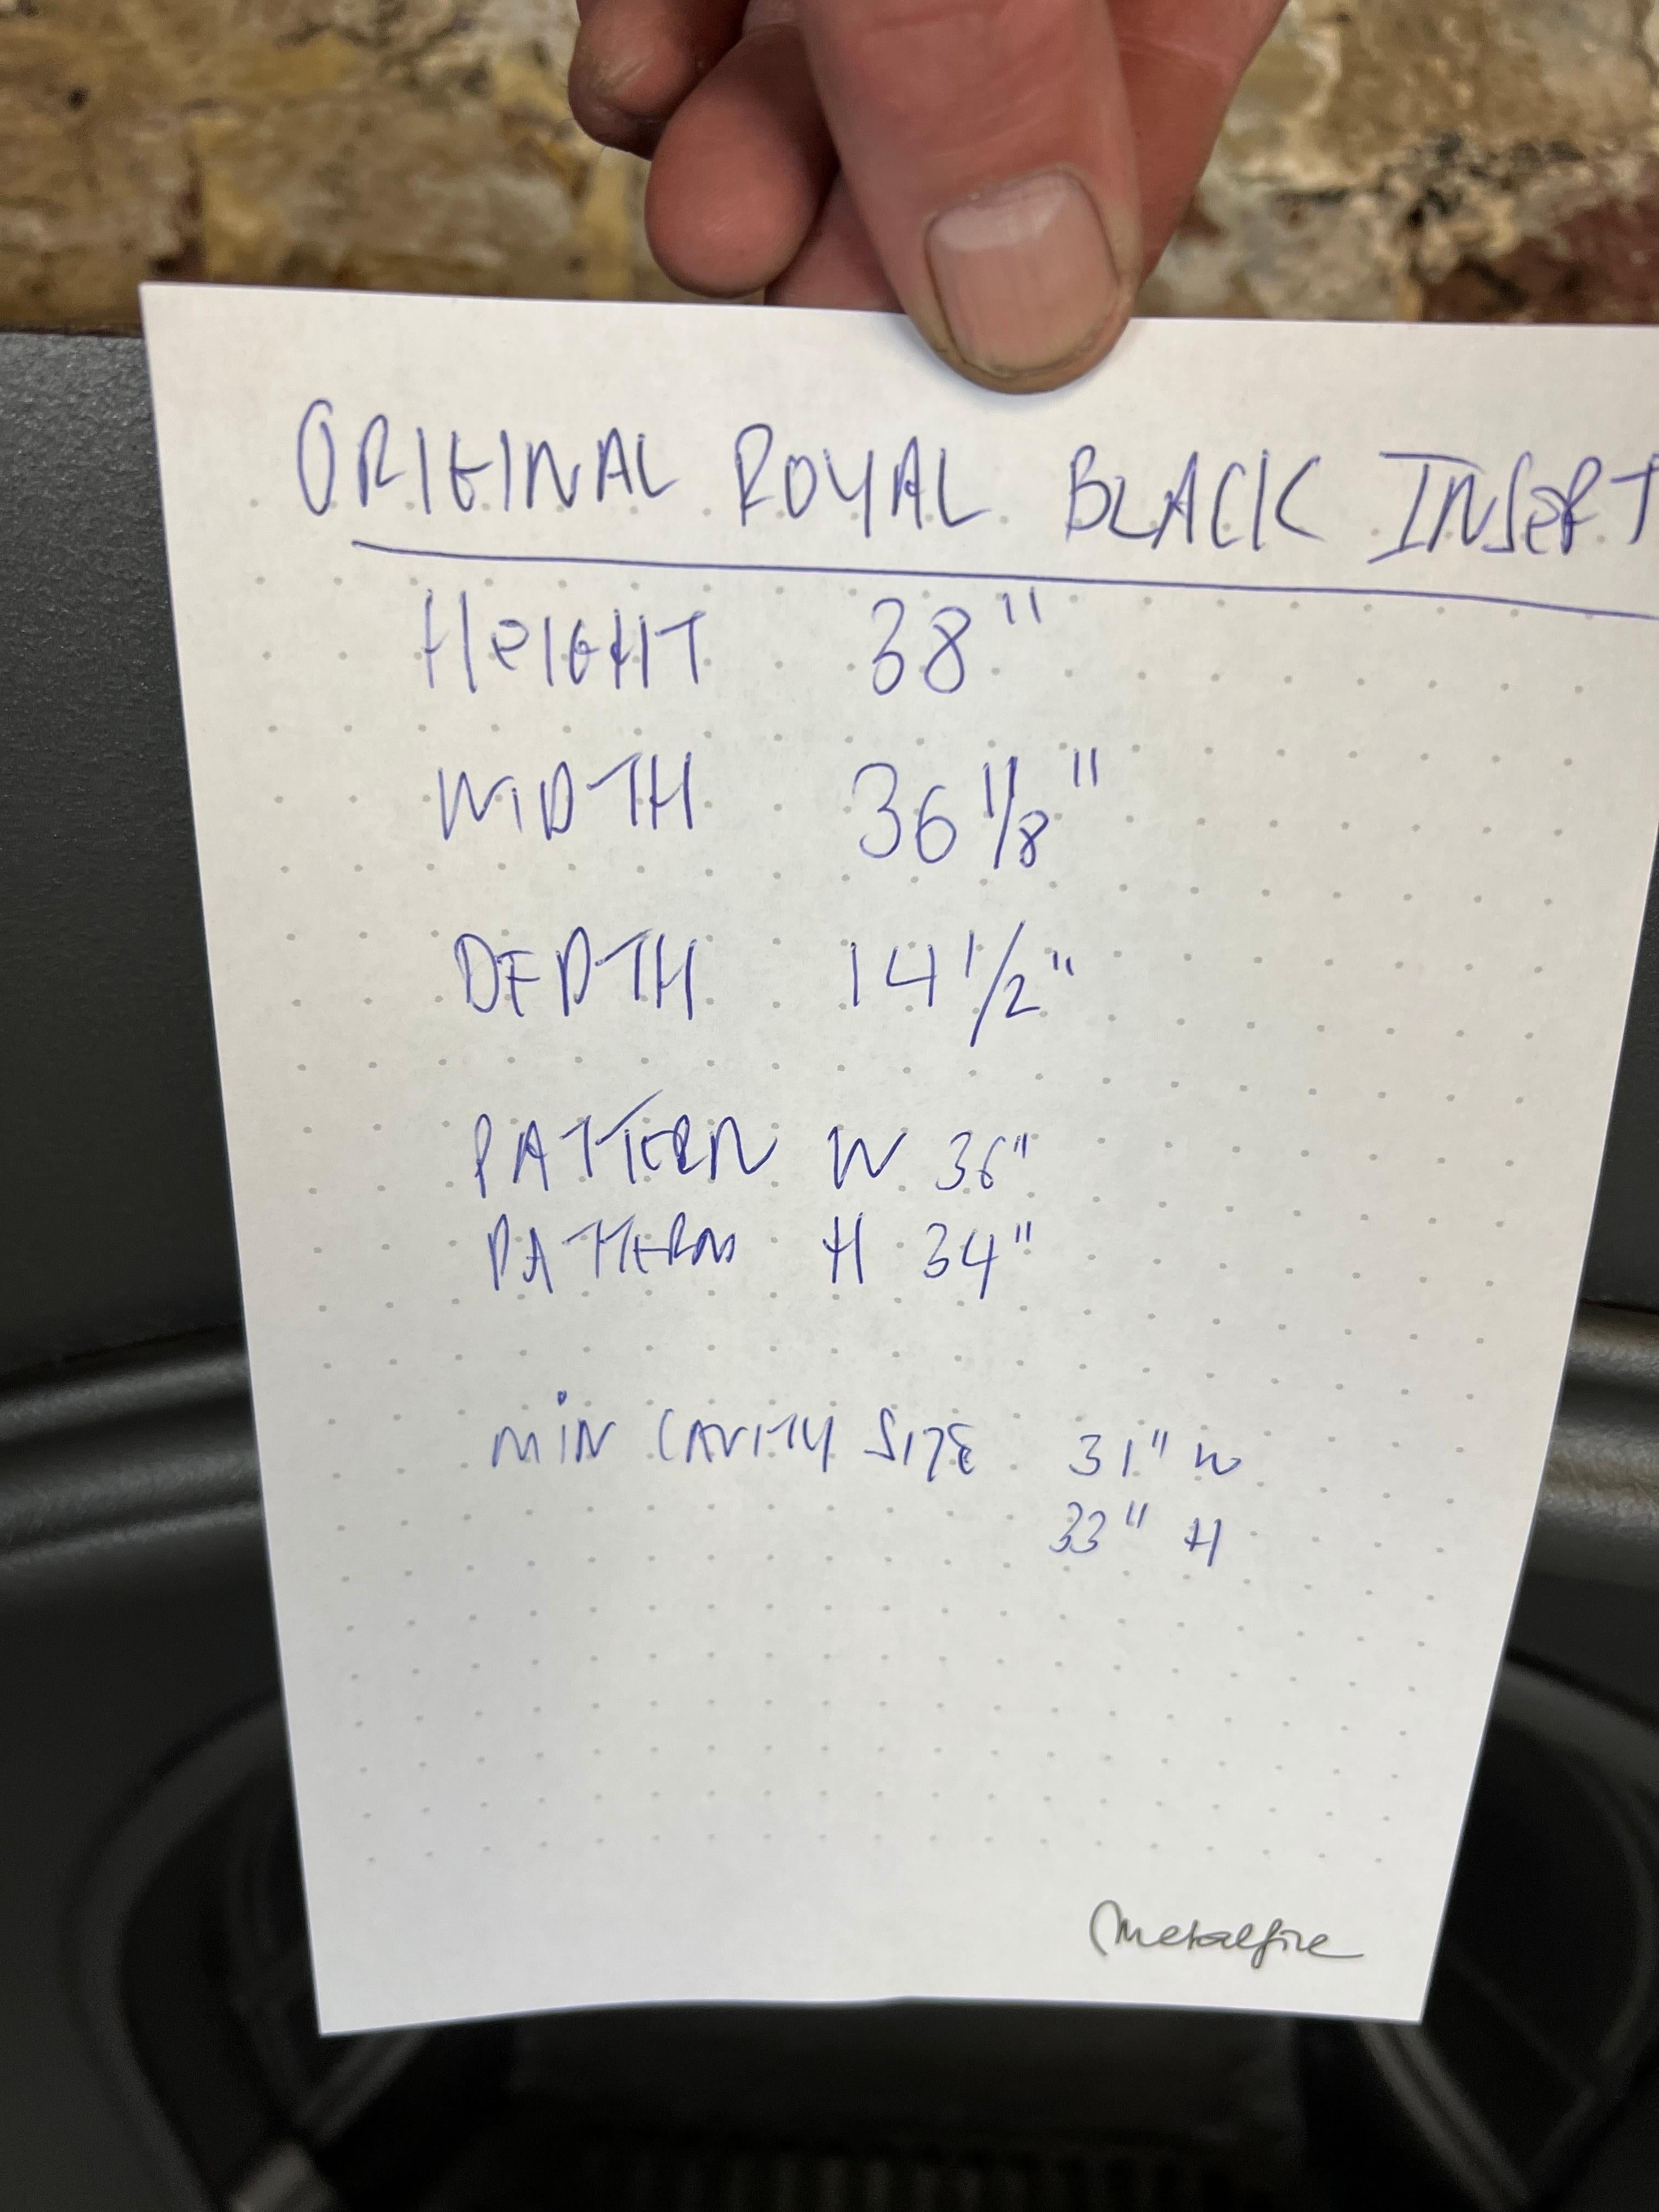 ORIGINAL ROYAL BLACK INSERT
HEIGHT 38"
WIDTH 36 1/8"
DEPTH 14 1/2"
PATTERN W 36"
PATTERN H 34"
MIN CAVITY SIZE 31" W
33" H
Metalfire